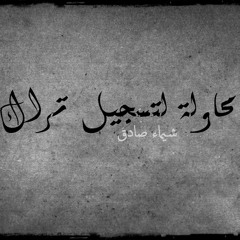 محاولة لتسجيل تراك
شيماء صادق